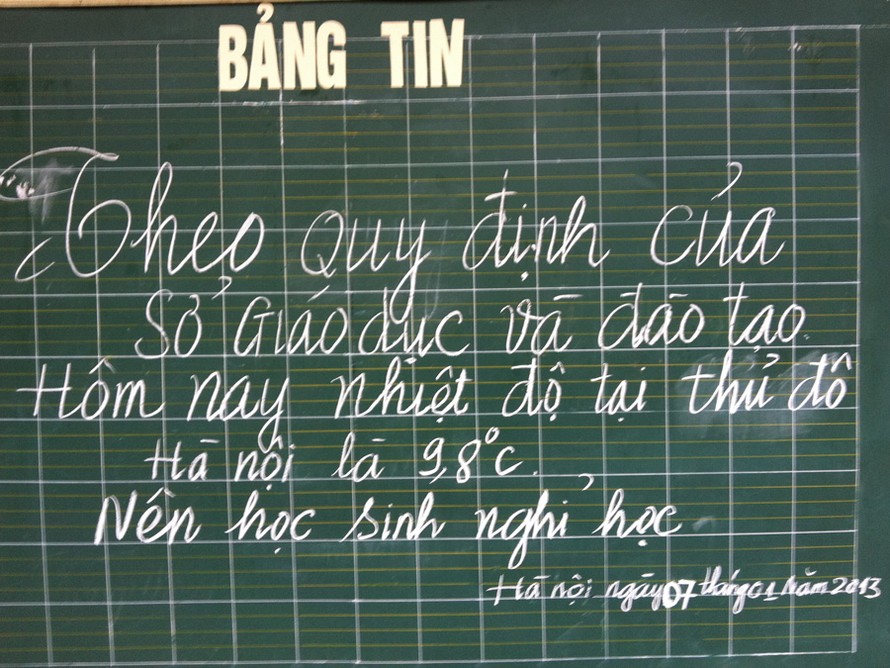 BẢNG TIN
Theo quy định của
Sở Giáo dục và đào tạo
Hôm nay nhiệt độ tại thủ đô
Hà nội là 9,8°c.
Nên học sinh nghỉ học
Hà nội ngày 07 tháng 01 năm 2013